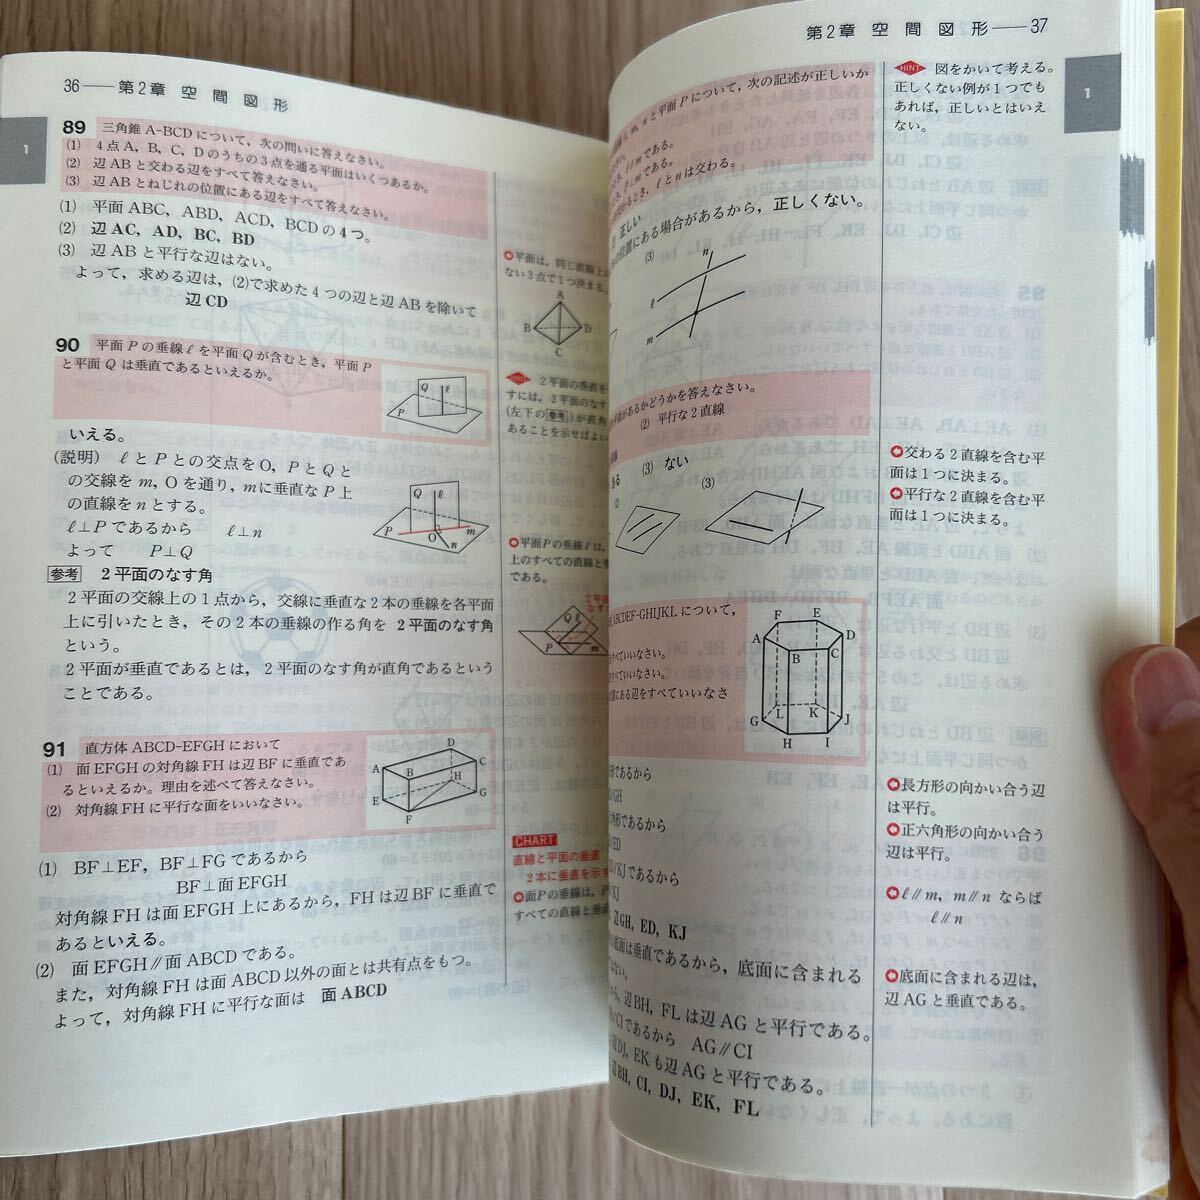 36——第2章 空間図形
1
89 三角錐 A-BCD について，次の問いに答えなさい。
(1) 4点 A，B，C，D のうちの3点を通る平面はいくつあるか。
(2) 辺 AB と交わる辺をすべて答えなさい。
(3) 辺 AB とねじれの位置にある辺をすべて答えなさい。
(1) 平面 ABC，ABD，ACD，BCD の 4つ。
(2) 辺 AC，AD，BC，BD
(3) 辺 AB と平行な辺はない。
よって，求める辺は，(2)で求めた4つの辺と辺 AB を除いて
辺 CD
平面は，同じ直線上
ない3点で1つ決まる。
A
B
D
C
90 平面 P の垂線 ℓ を平面 Q が含むとき，平面 P
と平面 Q は垂直であるといえるか。
Q
ℓ
P
HINT 2平面の垂直を
すには，2平面のなす
(左下の 参考) が直角
あることを示せばよい
いえる。
(説明) ℓ と P との交点を O，P と Q と
の交線を m，O を通り，m に垂直な P 上
の直線を n とする。
ℓ⊥P であるから ℓ⊥n
よって P⊥Q
Q
ℓ
P
O
m
n
平面 P の垂線 ℓ は，
上のすべての直線と
である。
参考 2平面のなす角
2平面の交線上の1点から，交線に垂直な2本の垂線を各平面
上に引いたとき，その2本の垂線の作る角を 2平面のなす角
という。
2平面が垂直であるとは，2平面のなす角が直角であるという
ことである。
2平面
なす
Q
ℓ
P
m
91 直方体 ABCD-EFGH において
(1) 面 EFGH の対角線 FH は辺 BF に垂直であ
るといえるか。理由を述べて答えなさい。
(2) 対角線 FH に平行な面をいいなさい。
D
A
B
C
H
E
G
F
(1) BF⊥EF，BF⊥FG であるから
BF⊥面 EFGH
対角線 FH は面 EFGH 上にあるから，FH は辺 BF に垂直で
あるといえる。
(2) 面 EFGH∥面 ABCD である。
また，対角線 FH は面 ABCD 以外の面とは共有点をもつ。
よって，対角線 FH に平行な面は 面 ABCD
CHART
直線と平面の垂直
2本に垂直を示す
面 P の垂線は，P
すべての直線と垂
第2章 空間図形——37
1
m，n と平面 P について，次の記述が正しいか
ℓ∥m である。
ℓ⊥m である。
とき，ℓ と n は交わる。
正しい
の位置にある場合があるから，正しくない。
(3)
n
ℓ
m
HINT 図をかいて考える。
正しくない例が1つでも
あれば，正しいとはいえ
ない。
平面があるかどうかを答えなさい。
(2) 平行な2直線
ある (3) ない
(3)
交わる2直線を含む平
面は1つに決まる。
平行な2直線を含む平
面は1つに決まる。
ABCDEF-GHIJKL について，
すべていいなさい。
すべていいなさい。
置にある辺をすべていいなさ
F
E
A
D
B
C
L
K
G
J
H
I
形であるから
GH
角形であるから
ED
KJ であるから
KJ
辺 GH，ED，KJ
底面は垂直であるから，底面に含まれる
はない。
から，辺 BH，FL は辺 AG と平行である。
CI であるから AG∥CI
辺 DJ，EK も辺 AG と平行である。
辺 BH，CI，DJ，EK，FL
長方形の向かい合う辺
は平行。
正六角形の向かい合う
辺は平行。
ℓ∥m，m∥n ならば
ℓ∥n
底面に含まれる辺は，
辺 AG と垂直である。